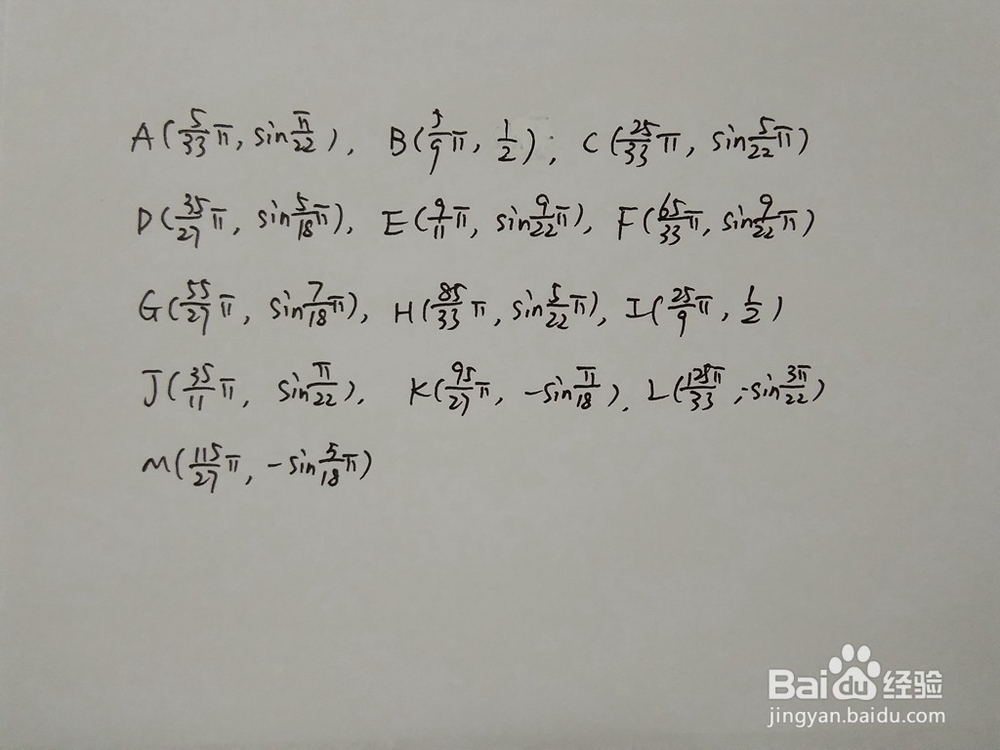 A(5/33 π, sin π/22), B(5/9 π, 1/2); C(25/33 π, sin 5/22 π)
D(35/27 π, sin 5/18 π), E(9/11 π, sin 9/22 π), F(65/33 π, sin 9/22 π)
G(55/27 π, sin 7/18 π), H(85/33 π, sin 5/22 π), I(25/9 π, 1/2)
J(35/11 π, sin π/22), K(95/27 π, -sin π/18), L(125π/33, -sin 3π/22)
M(115/27 π, -sin 5/18 π)
Baidu 经验
jingyan.baidu.com